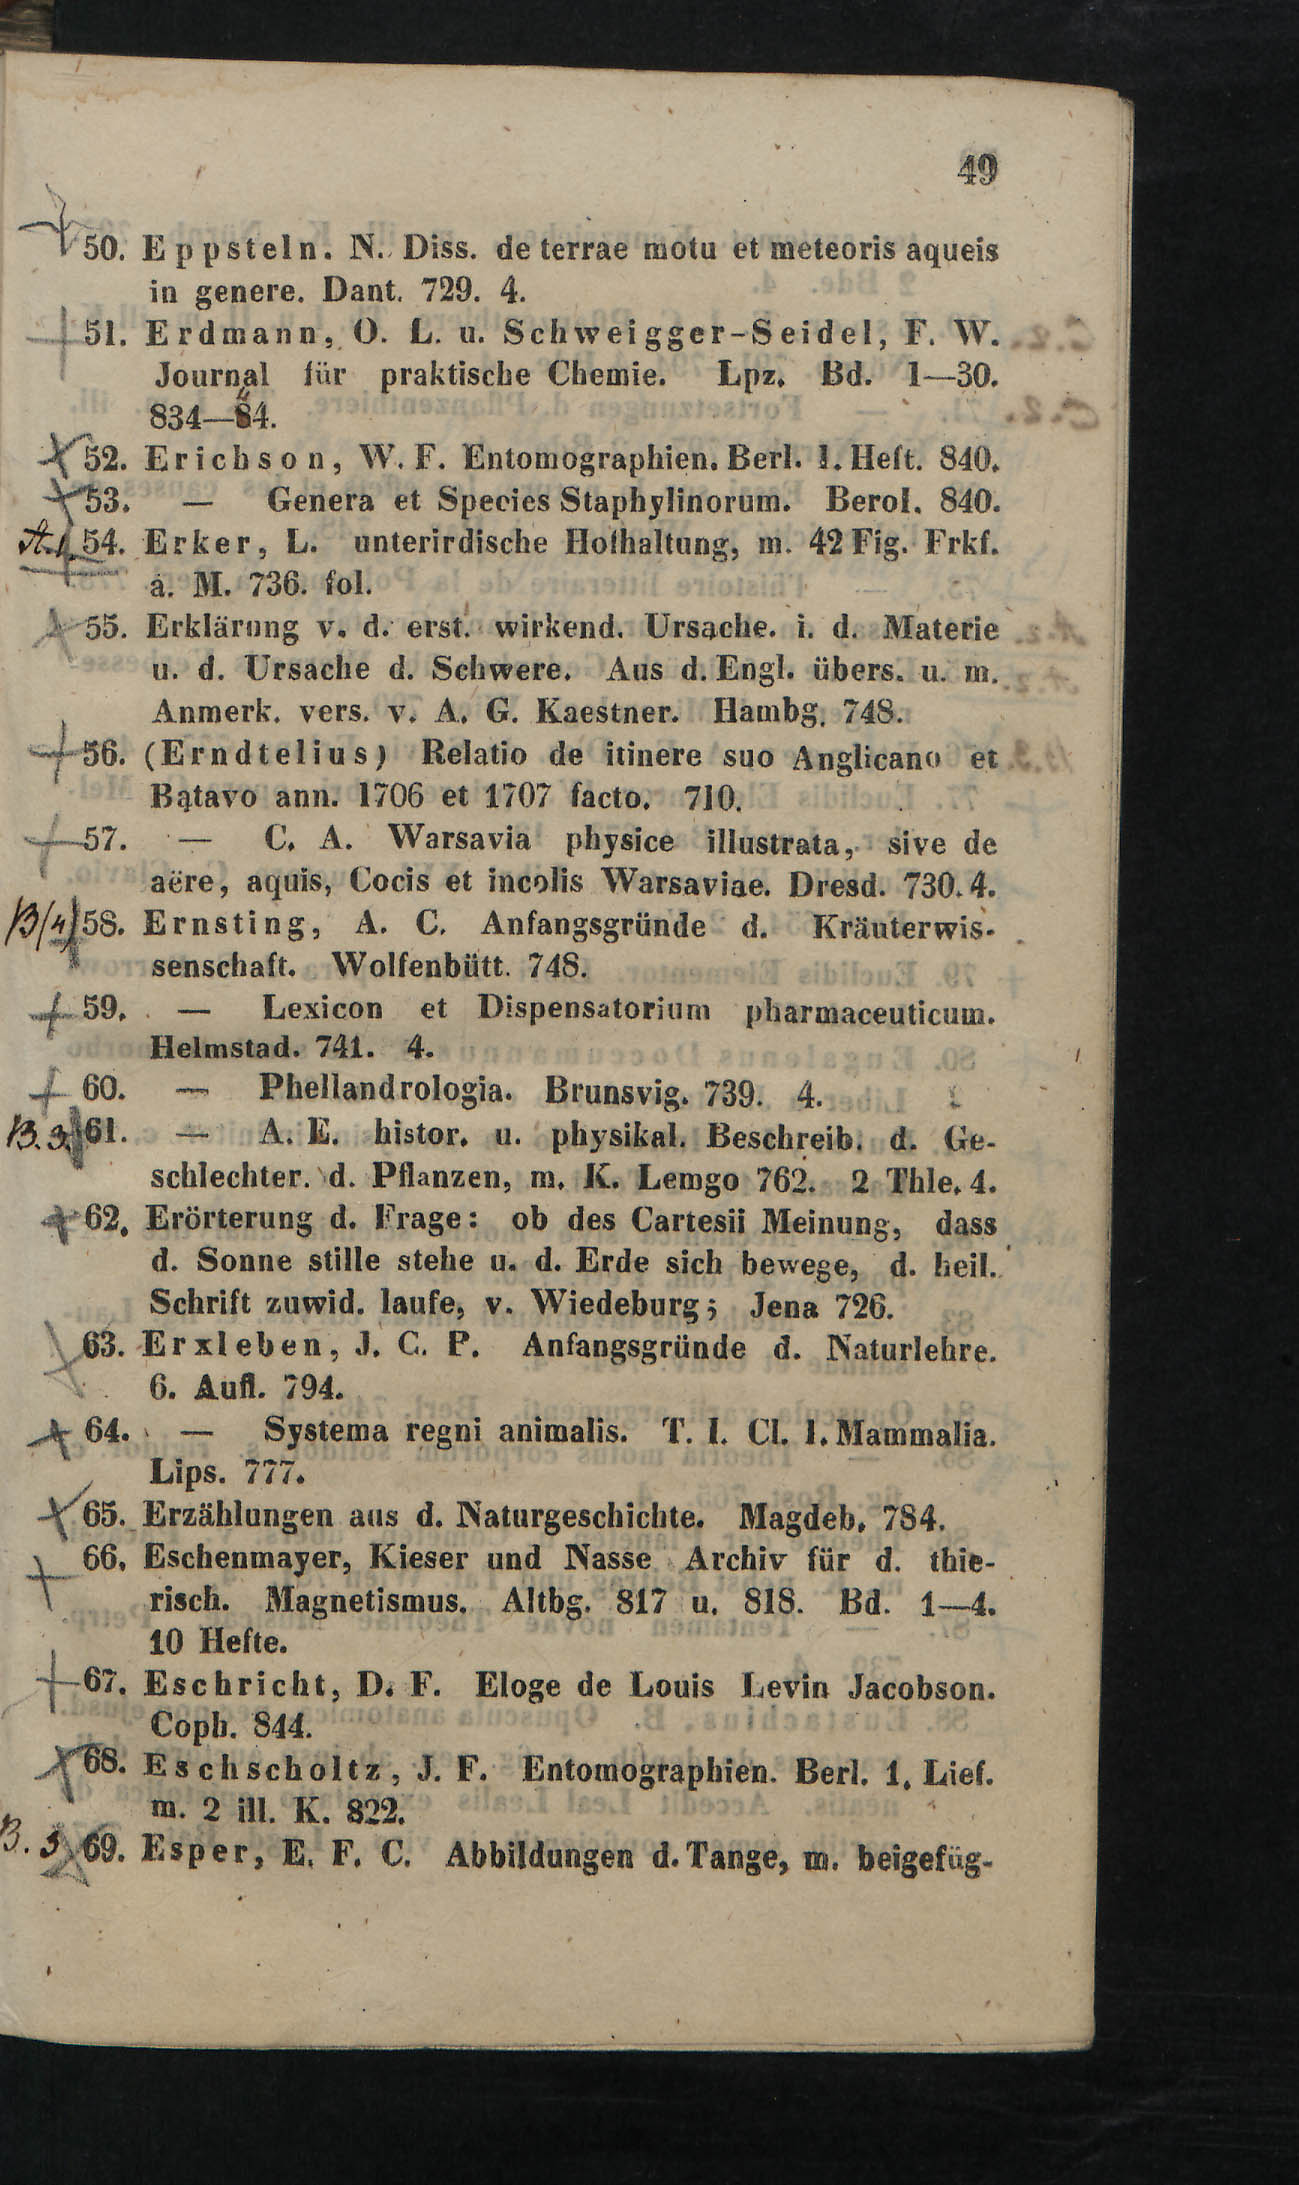 49
50. Eppstein. N. Diss. de terrae motu et meteoris aqueis
in genere. Dant. 729. 4.
51. Erdmann, O. L. u. Schweigger-Seidel, F. W.
Journal für praktische Chemie. Lpz. Bd. 1—30.
834—84.
52. Erichson, W. F. Entomographien. Berl. 1. Heft. 840.
53. — Genera et Species Staphylinorum. Berol. 840.
A. 1. 54. Erker, L. unterirdische Hofhaltung, m. 42 Fig. Frkf.
a. M. 736. fol.
55. Erklärung v. d. erst. wirkend. Ursache. i. d. Materie
u. d. Ursache d. Schwere. Aus d. Engl. übers. u. m.
Anmerk. vers. v. A. G. Kaestner. Hambg. 748.
56. (Erndtelius) Relatio de itinere suo Anglicano et
Batavo ann. 1706 et 1707 facto. 710.
57. — C. A. Warsavia physice illustrata, sive de
aëre, aquis, Cocis et incolis Warsaviae. Dresd. 730. 4.
B(4) 58. Ernsting, A. C. Anfangsgründe d. Kräuterwis-
senschaft. Wolfenbütt. 748.
59. — Lexicon et Dispensatorium pharmaceuticum.
Helmstad. 741. 4.
60. — Phellandrologia. Brunsvig. 739. 4.
B. 3. 61. — A. E. histor. u. physikal. Beschreib. d. Ge-
schlechter. d. Pflanzen, m. K. Lemgo 762. 2 Thle. 4.
62. Erörterung d. Frage: ob des Cartesii Meinung, dass
d. Sonne stille stehe u. d. Erde sich bewege, d. heil.
Schrift zuwid. laufe, v. Wiedeburg; Jena 726.
63. Erxleben, J. C. P. Anfangsgründe d. Naturlehre.
6. Aufl. 794.
64. — Systema regni animalis. T. I. Cl. I. Mammalia.
Lips. 777.
65. Erzählungen aus d. Naturgeschichte. Magdeb. 784.
66. Eschenmayer, Kieser und Nasse Archiv für d. thie-
risch. Magnetismus. Altbg. 817 u. 818. Bd. 1—4.
10 Hefte.
67. Eschricht, D. F. Eloge de Louis Levin Jacobson.
Coph. 844.
68. Eschscholtz, J. F. Entomographien. Berl. 1. Lief.
m. 2 ill. K. 822.
B. 3 69. Esper, E. F. C. Abbildungen d. Tange, m. beigefüg-